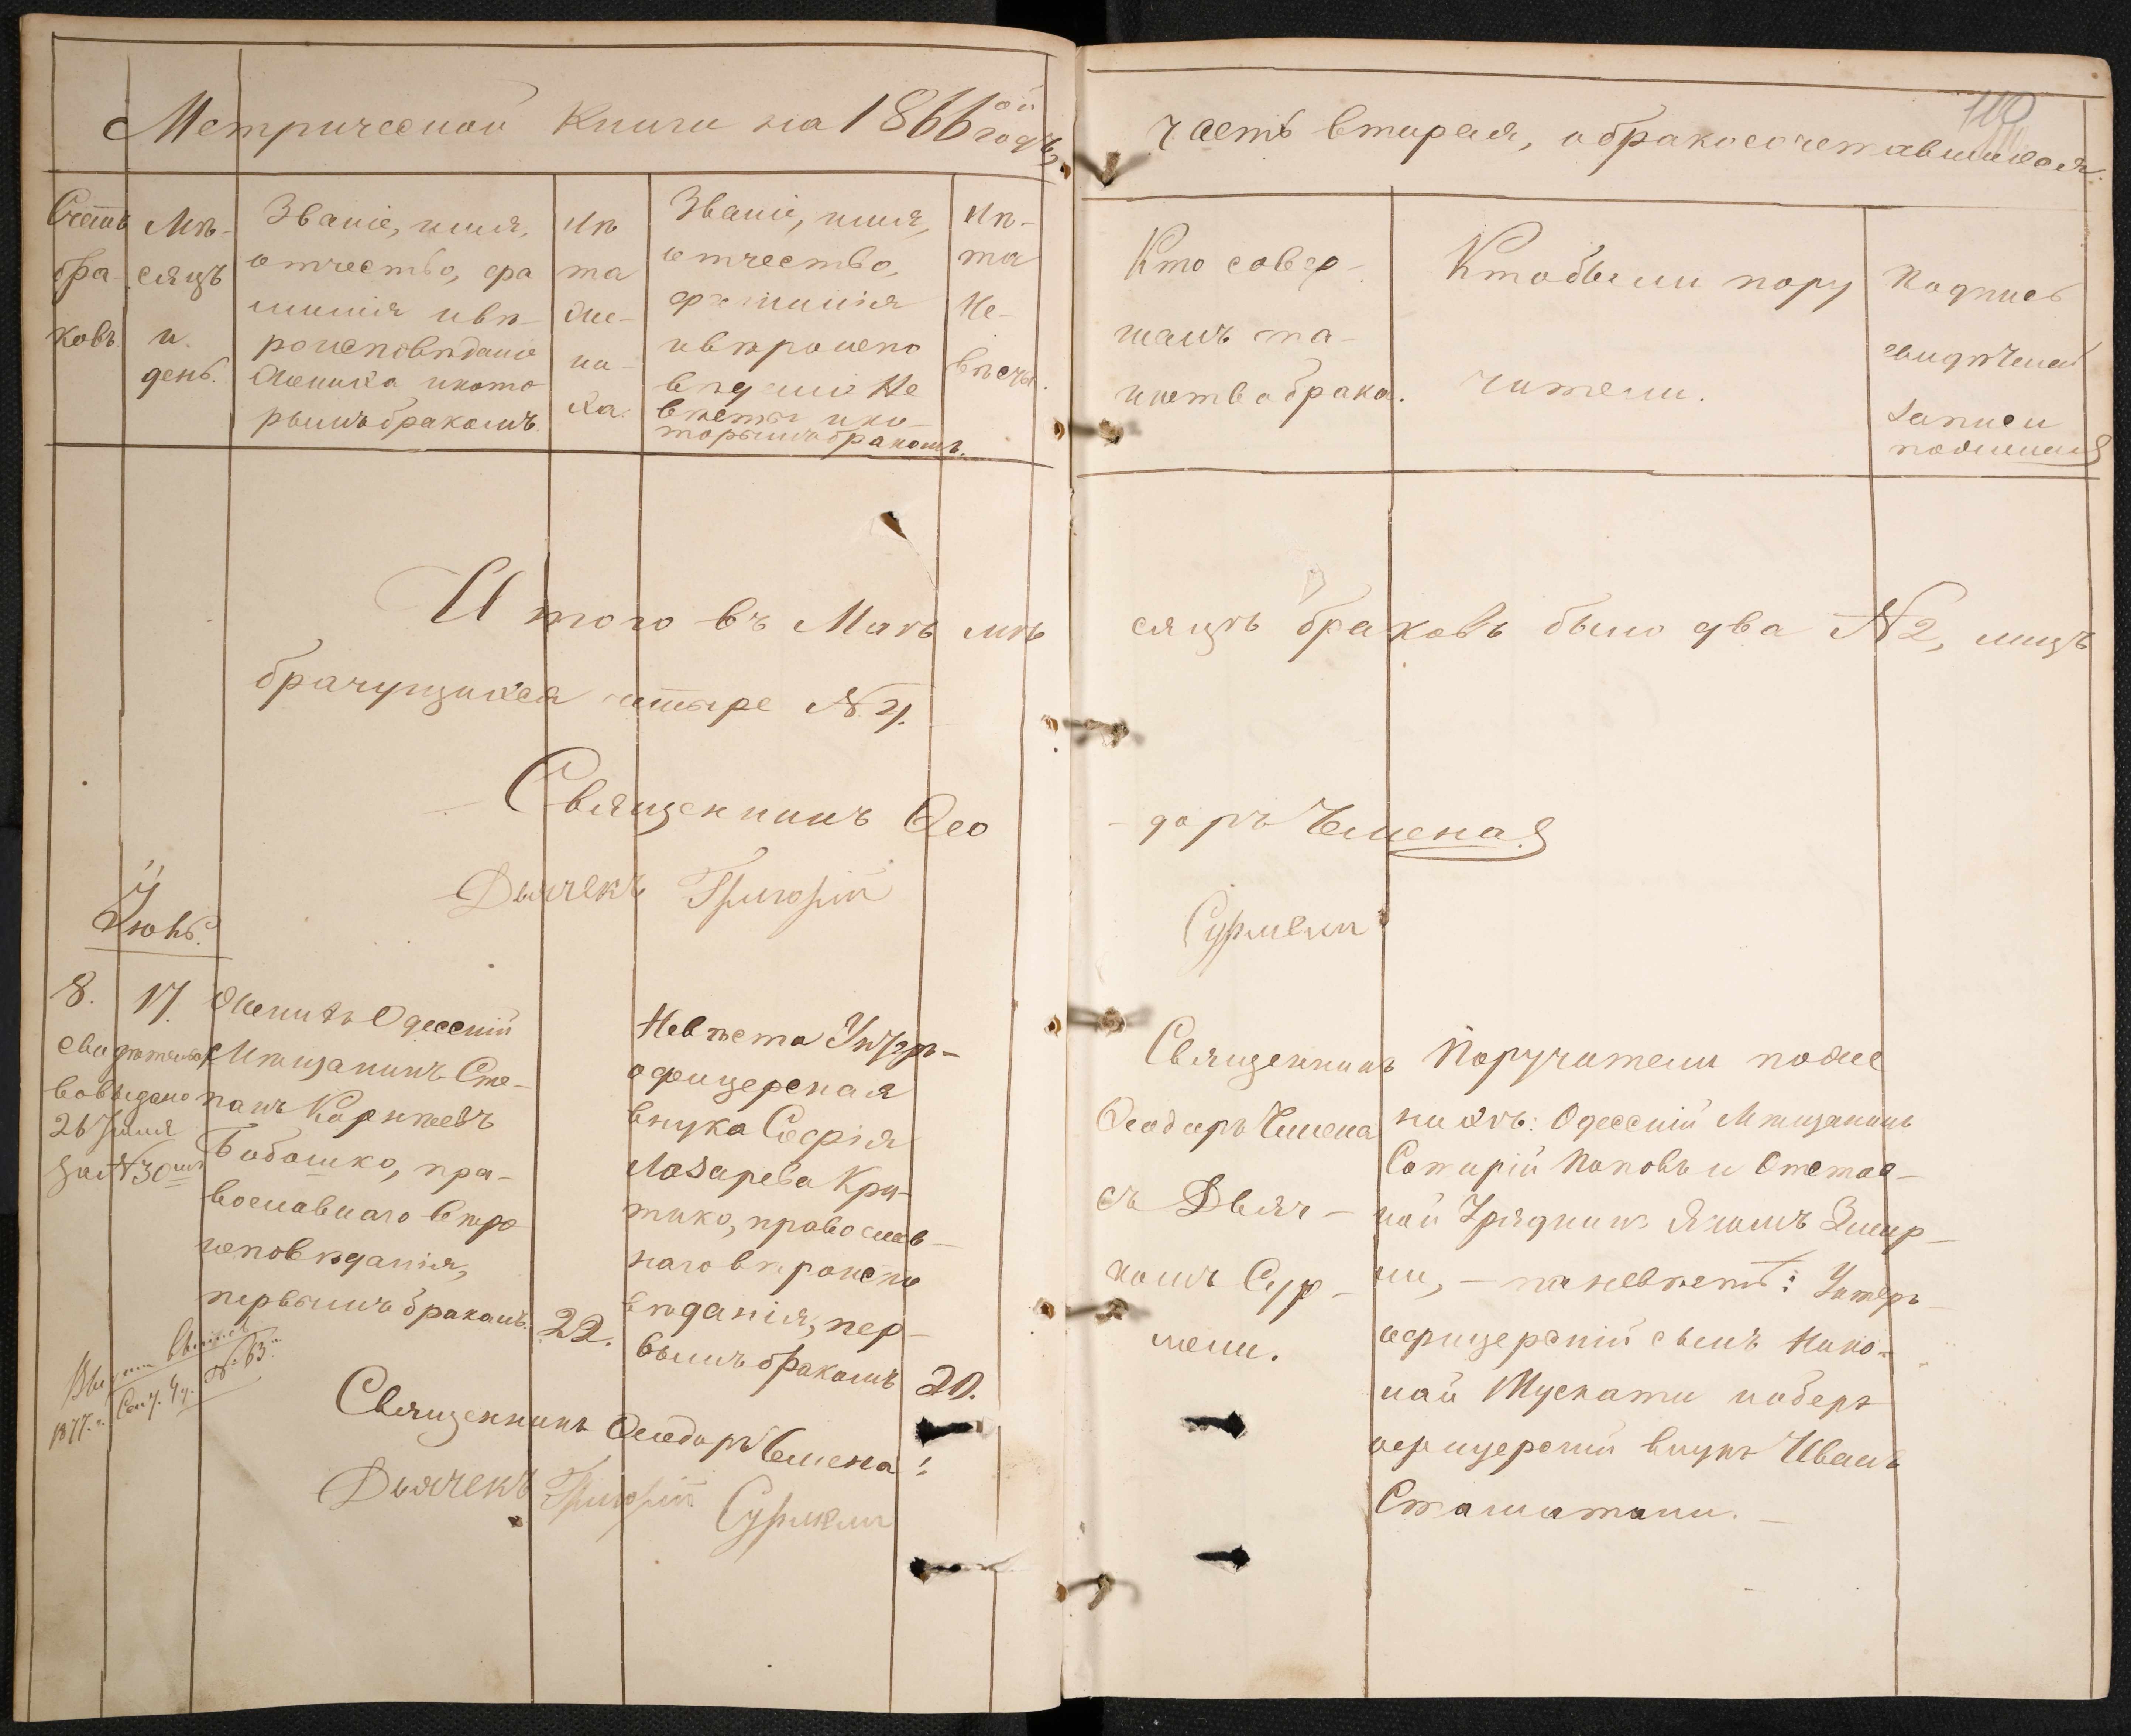 Метрической Книги на 1866ой годъ,
часть вторая, о бракосочетавшихся.
110
Счетъ бра-ковъ.
Мѣ-
сяцъ
и
день.
Званіе, имя,
отчество, фа
милія и вѣ-
роисповѣданіе
жениха и кото
рымъ бракомъ.
Лѣ
та
же-
ни-
ха.
Званіе, имя,
отчество,
фамилія
и вѣроиспо
вѣданіе Не
вѣсты и ко-
торымъ бракомъ.
Лѣ-
та
Не-
вѣсты.
Кто совер-
шалъ та-
инство брака.
Кто были пору
чители.
Подпись
свидѣтелей
записи
по желанію
Итого въ Маѣ мѣ
сяцѣ браковъ было два №2, лицъ
брачущихся четыре №4.
Священникъ Ѳео
доръ Чмена
Дьячекъ Григорій
Сурмели
Іюнь.
8.
17.
свидѣтельст
во выдано
26 Іюня
за №30мъ
Женихъ Одесскій
Мѣщанинъ Сте-
панъ Корнѣевъ
Бабошко, пра-
вославнаго вѣро
исповѣданія,
первымъ бракомъ.
22.
Невѣста Унтеръ-
офицерская
внука Софія
Лазарева Кри-
тико, православ-
наго вѣроиспо
вѣданія, пер-
вымъ бракомъ
20.
1877. г. Сен. 4 д. № 63.
Священникъ Ѳеодоръ Чмена
Дьячекъ Григорій Сурмели
Священникъ
Ѳеодоръ Чмена
съ Дьяч-
комъ Сур-
мели.
Поручители по же
нихѣ: Одесскій Мѣщанинъ
Сотирій Поповъ и Отстав-
ной Урядникъ Якимъ Змир-
ли, - по невѣстѣ: Унтеръ-
офицерскій сынъ Нико-
лай Мускати и оберъ
офицерскій внукъ Иванъ
Стаматаки.